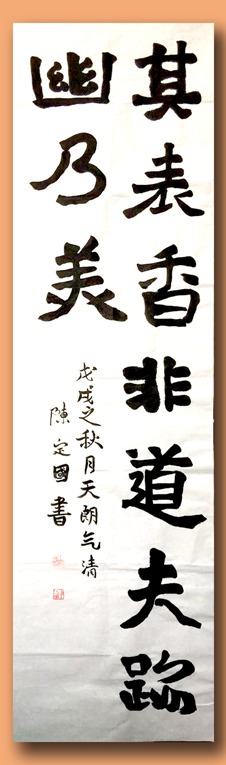 其表香非道夫跡
幽乃美
戊戌之秋月天朗气清
陳定國書